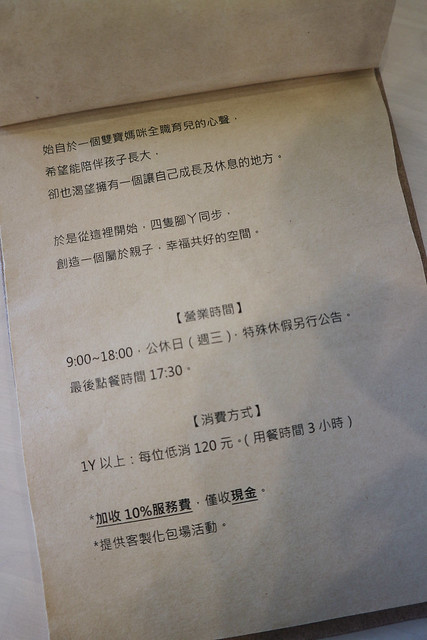 始自於一個雙寶媽咪全職育兒的心聲，
希望能陪伴孩子長大，
卻也渴望擁有一個讓自己成長及休息的地方。
於是從這裡開始，四隻腳丫同步，
創造一個屬於親子，幸福共好的空間。
【營業時間】
9:00~18:00，公休日（週三），特殊休假另行公告。
最後點餐時間 17:30。
【消費方式】
1Y 以上：每位低消 120 元。（用餐時間 3 小時）
*加收 10%服務費，僅收現金。
*提供客製化包場活動。